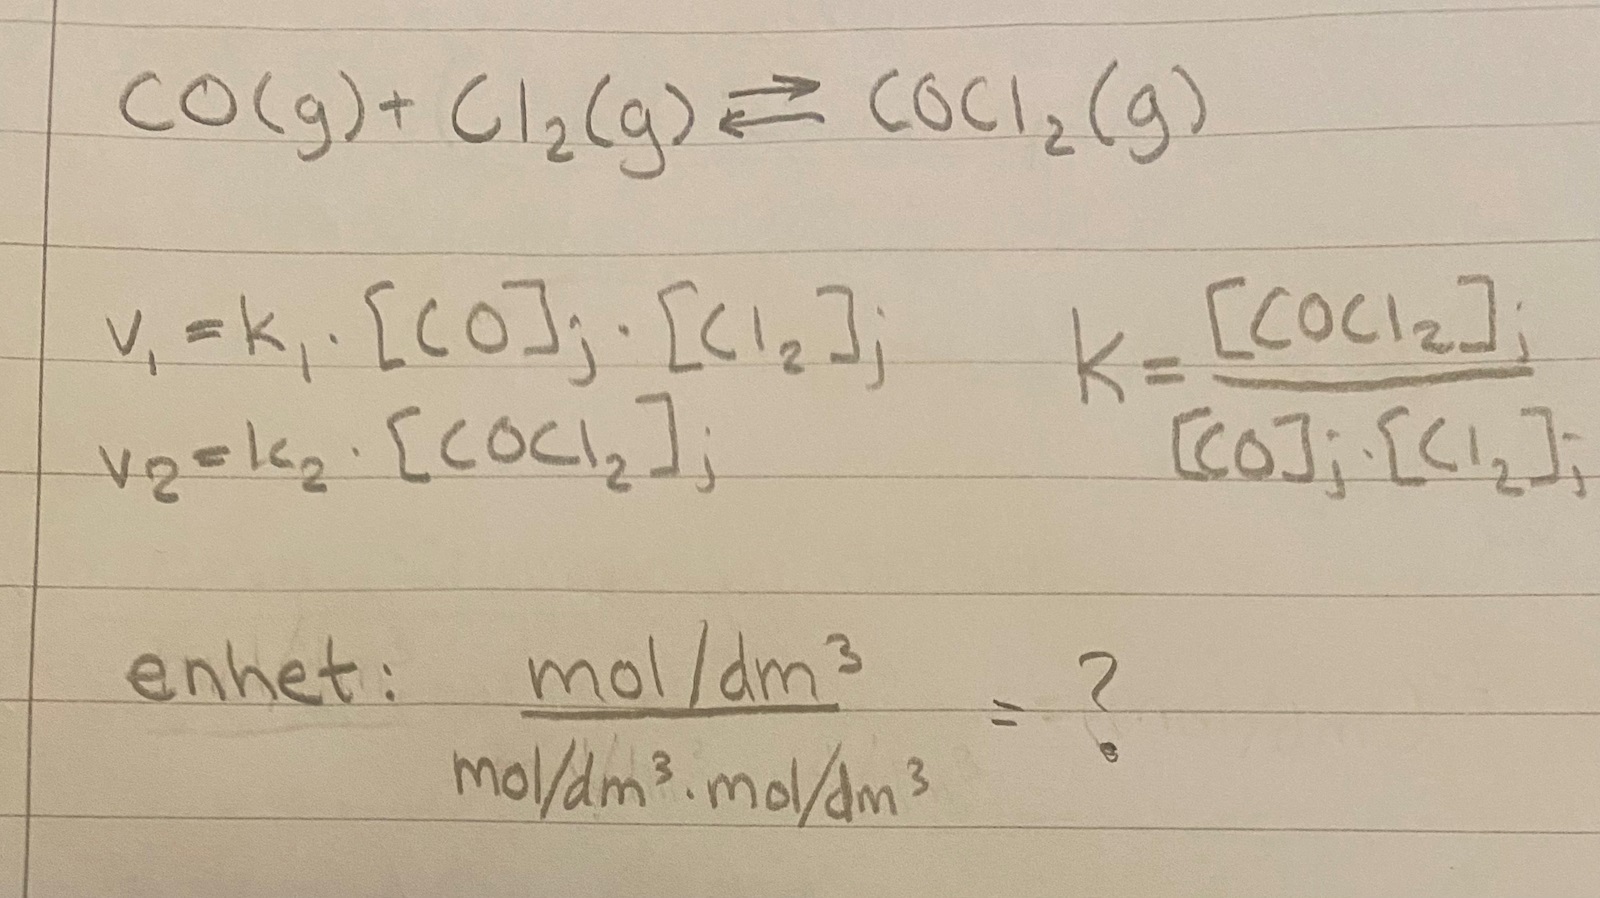 CO(g) + Cl₂(g) ⇄ COCl₂(g)
v₁ = k₁ · [CO]j · [Cl₂]j
K = [COCl₂]j / [CO]j · [Cl₂]j
v₂ = k₂ · [COCl₂]j
enhet: mol/dm³ / mol/dm³ · mol/dm³ = ?